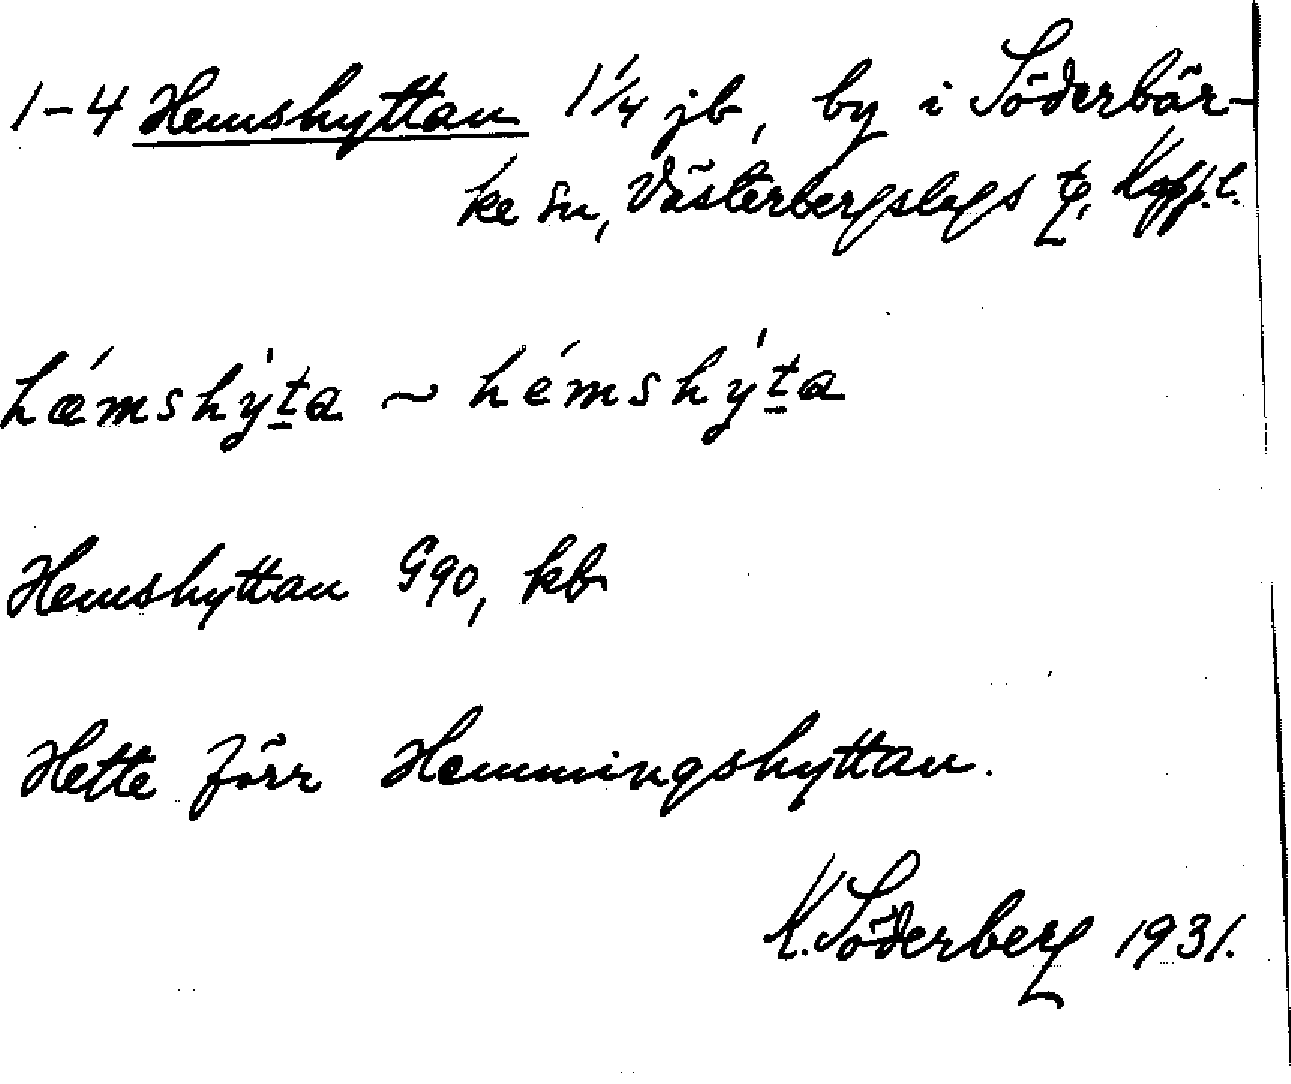 1-4 Hemshyttan 1 1/4 jb, by i Söderbär-
ke sn, Västerbergslags tg, Kopp.l.
hǽmshy̍ṯa ~ hémshy̍ṯa
Hemshyttan G90, kb
Hette förr Hemmingshyttan.
K. Söderberg 1931.